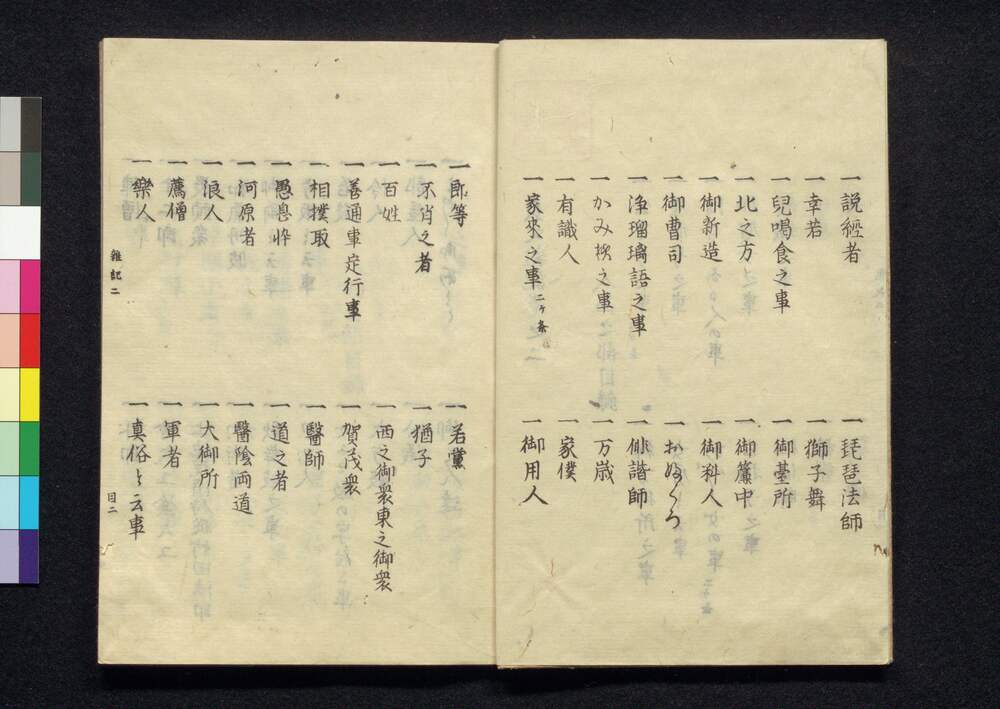 一説經者 一琵琶法師
一幸若 一獅子舞
一兒喝食之事 一御臺所
一北之方 一御簾中
一御新造 一御料人
一御曹司 一おふくろ
一浄瑠璃語之事 一俳諧師
一かみ様之事 一万歳
一有識人 一家僕
一家来之事 二ケ条 一御用人
一郎等 一若黨
一不肖之者 一猶子
一百姓 一西之御衆東之御衆
一善通事定行事 一賀茂衆
一相撲取 一醫師
一愚息悴 一道之者
一河原者 一醫陰両道
一浪人 一大御所
一薦僧 一軍者
一樂人 一真俗と云事
雜記二 目二